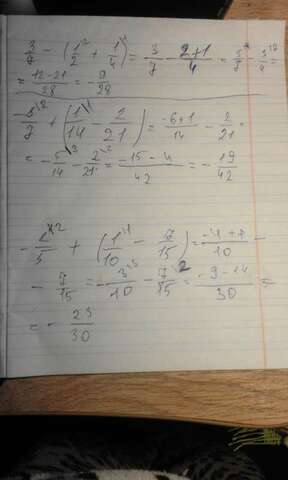 3/7 - (1/2 + 1/4) = 3/7 - 2+1/4 = 3/7 - 3/4 =
= 12-21/28 = - 9/28
-3/7 + (1/14 - 2/21) = -6+1/14 - 2/21 =
= - 5/14 - 2/21 = -15-4/42 = - 19/42
- 2/5 + (1/10 - 7/15) = -4+1/10 -
- 7/15 = - 3/10 - 7/15 = -9-14/30 =
= - 23/30